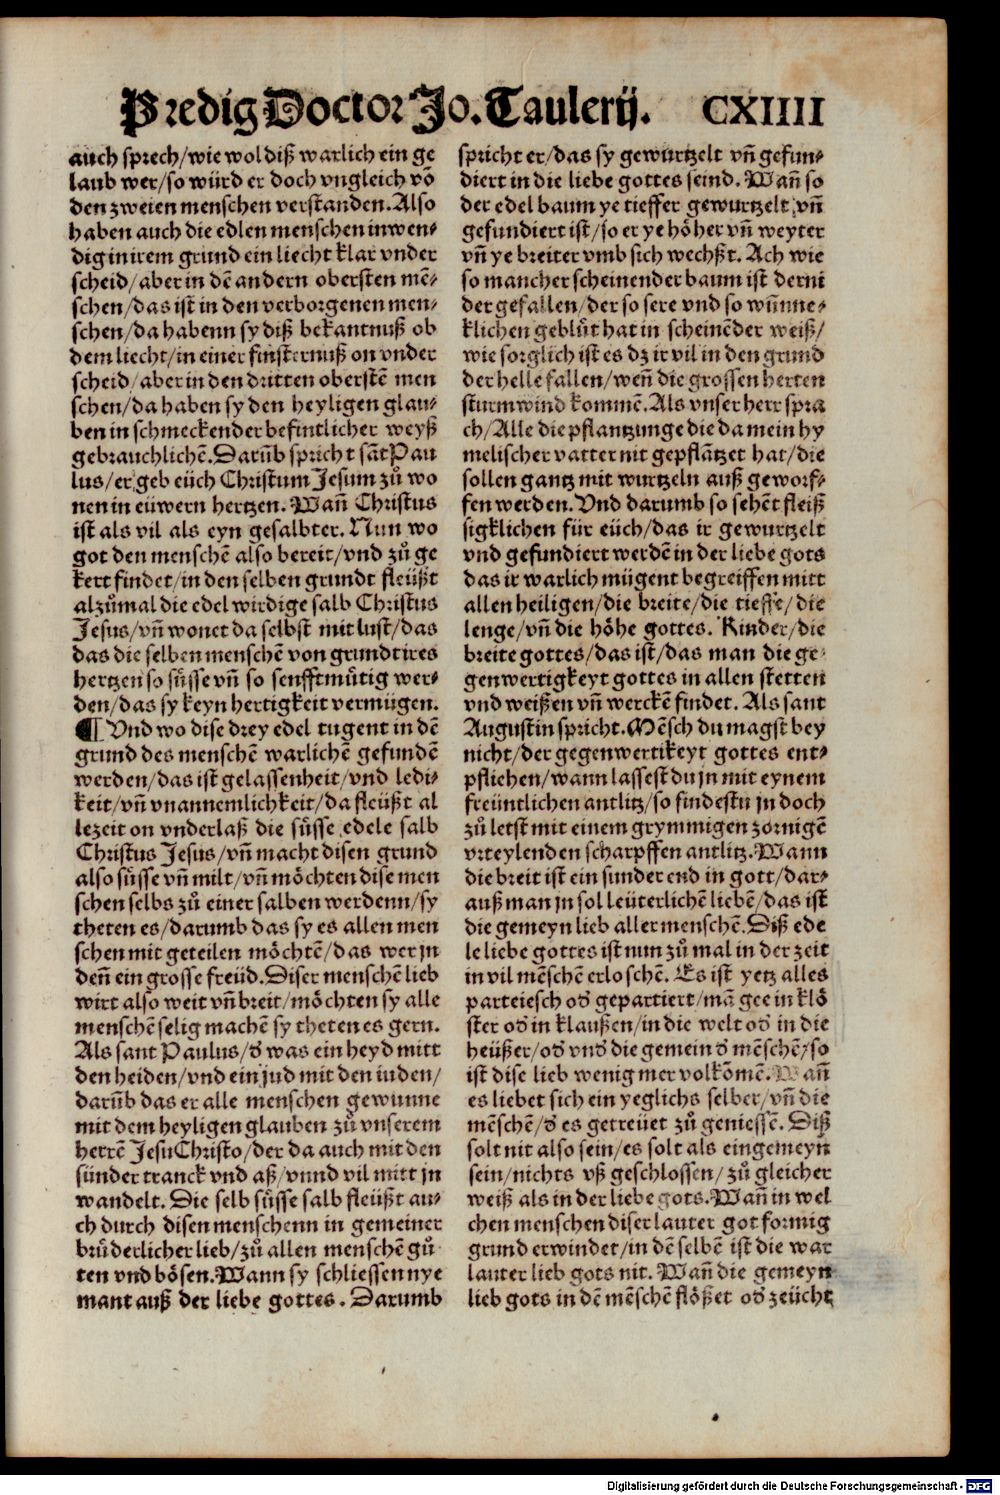 Predig Doctor Jo. Taulerij. CXIIII
auch sprech/wie wol diß warlich ein ge
laub wer/so würd er doch vngleich võ
den zweien menschen verstanden. Also
haben auch die edlen menschen inwen⸗
dig in irem grund ein liecht klar vnder
scheid/aber in dẽ andern obersten mẽ⸗
schen/das ist in den verborgenen men⸗
schen/da habenn sy diß bekantnuß ob
dem liecht/in einer finsternuß on vnder
scheid/aber in den dritten oberstẽ men
schen/da haben sy den heyligen glau⸗
ben in schmeckender befintlicher weyß
gebrauchlichẽ. Darũb spricht sãt Pau
lus/er geb eüch Christum Jesum zů wo
nen in eüwern hertzen. Wañ Christus
ist als vil als eyn gesalbter. Nun wo
got den menschẽ also bereit/vnd zů ge
kert findet/in den selben grundt fleüßt
alzůmal die edel wirdige salb Christus
Jesus/vñ wonet da selbst mit lust/das
das die selben menschẽ von grundt ires
hertzen so süsse vñ so senfftmütig wer⸗
den/das sy keyn hertigkeit vermügen.
¶ Vnd wo dise drey edel tugent in dẽ
grund des menschẽ warlichẽ gefundẽ
werden/das ist gelassenheit/vnd ledi⸗
keit/vñ vnannemlichkeit/da fleüßt al
lezeit on vnderlaß die süsse edele salb
Christus Jesus/vñ macht disen grund
also süsse vñ milt/vñ möchten dise men
schen selbs zů einer salben werdenn/sy
theten es/darumb das sy es allen men
schen mit geteilen möchtẽ/das wer jn
deñ ein grosse freüd. Diser menschẽ lieb
wirt also weit vñ breit/möchten sy alle
menschẽ selig machẽ sy theten es gern.
Als sant Paulus/ď was ein heyd mitt
den heiden/vnd ein jud mit den iuden/
darũb das er alle menschen gewunne
mit dem heyligen glauben zů vnserem
herrẽ Jesu Christo/der da auch mit den
sünder tranck vnd aß/vnnd vil mitt jn
wandelt. Die selb süsse salb fleüßt au⸗
ch durch disen menschenn in gemeiner
brůderlicher lieb/zů allen menschẽ gů⸗
ten vnd bösen. Wann sy schliessen nye
mant auß der liebe gottes. Darumb
spricht er/das sy gewurtzelt vñ gefun⸗
diert in die liebe gottes seind. Wañ so
der edel baum ye tieffer gewurtzelt vñ
gefundiert ist/so er ye höher vñ weyter
vñ ye breiter vmb sich wechßt. Ach wie
so mancher scheinender baum ist derni
der gefallen/der so sere vnd so wũnne⸗
klichen geblüt hat in scheinẽder weiß/
wie sorglich ist es dz ir vil in den grund
der helle fallen/weñ die grossen herten
sturmwind kommẽ. Als vnser herr spra
ch/Alle die pflantzunge die da mein hy
melischer vatter nit gepflãtzet hat/die
sollen gantz mit wurtzeln auß geworf⸗
fen werden. Vnd darumb so sehẽt fleiß
sigklichen für eüch/das ir gewurtzelt
vnd gefundiert werdẽ in der liebe gots
das ir warlich mügent begreiffen mitt
allen heiligen/die breite/die tieffe/die
lenge/vñ die höhe gottes. Kinder/die
breite gottes/das ist/das man die ge⸗
genwertigkeyt gottes in allen stetten
vnd weißen vñ werckẽ findet. Als sant
Augustin spricht. Mẽsch du magst bey
nicht/der gegenwertikeyt gottes ent⸗
pfliehen/wann lassest du jn mit eynem
freüntlichen antlitz/so findestu jn doch
zů letst mit einem grymmigen zornigẽ
vrteylenden scharpffen antlitz. Wann
die breit ist ein sunder end in gott/dar⸗
auß man jn sol leüterlichẽ liebẽ/das ist
die gemeyn lieb aller menschẽ. Diß ede
le liebe gottes ist nun zů mal in der zeit
in vil mẽschẽ erloschẽ. Es ist yetz alles
parteiesch oď gepartiert/mã gee in klö
ster oď in klaußen/in die welt oď in die
heüßer/oď vnď die gemein ď mẽschẽ/so
ist dise lieb wenig mer volkõmẽ. Wañ
es liebet sich ein yeglichs selber/vñ die
mẽschẽ/ď es getreüet zů geniessẽ. Diß
solt nit also sein/es solt als ein gemeyn
sein/nichts vß geschlossen/zů gleicher
weiß als in der liebe gots. Wañ in wel
chen menschen diser lauter got formig
grund erwindet/in dẽ selbẽ ist die war
lauter lieb gots nit. Wañ die gemeyn
lieb gots in dẽ mẽschẽ flößet oď zeücht
Digitalisierung gefördert durch die Deutsche Forschungsgemeinschaft - DFG